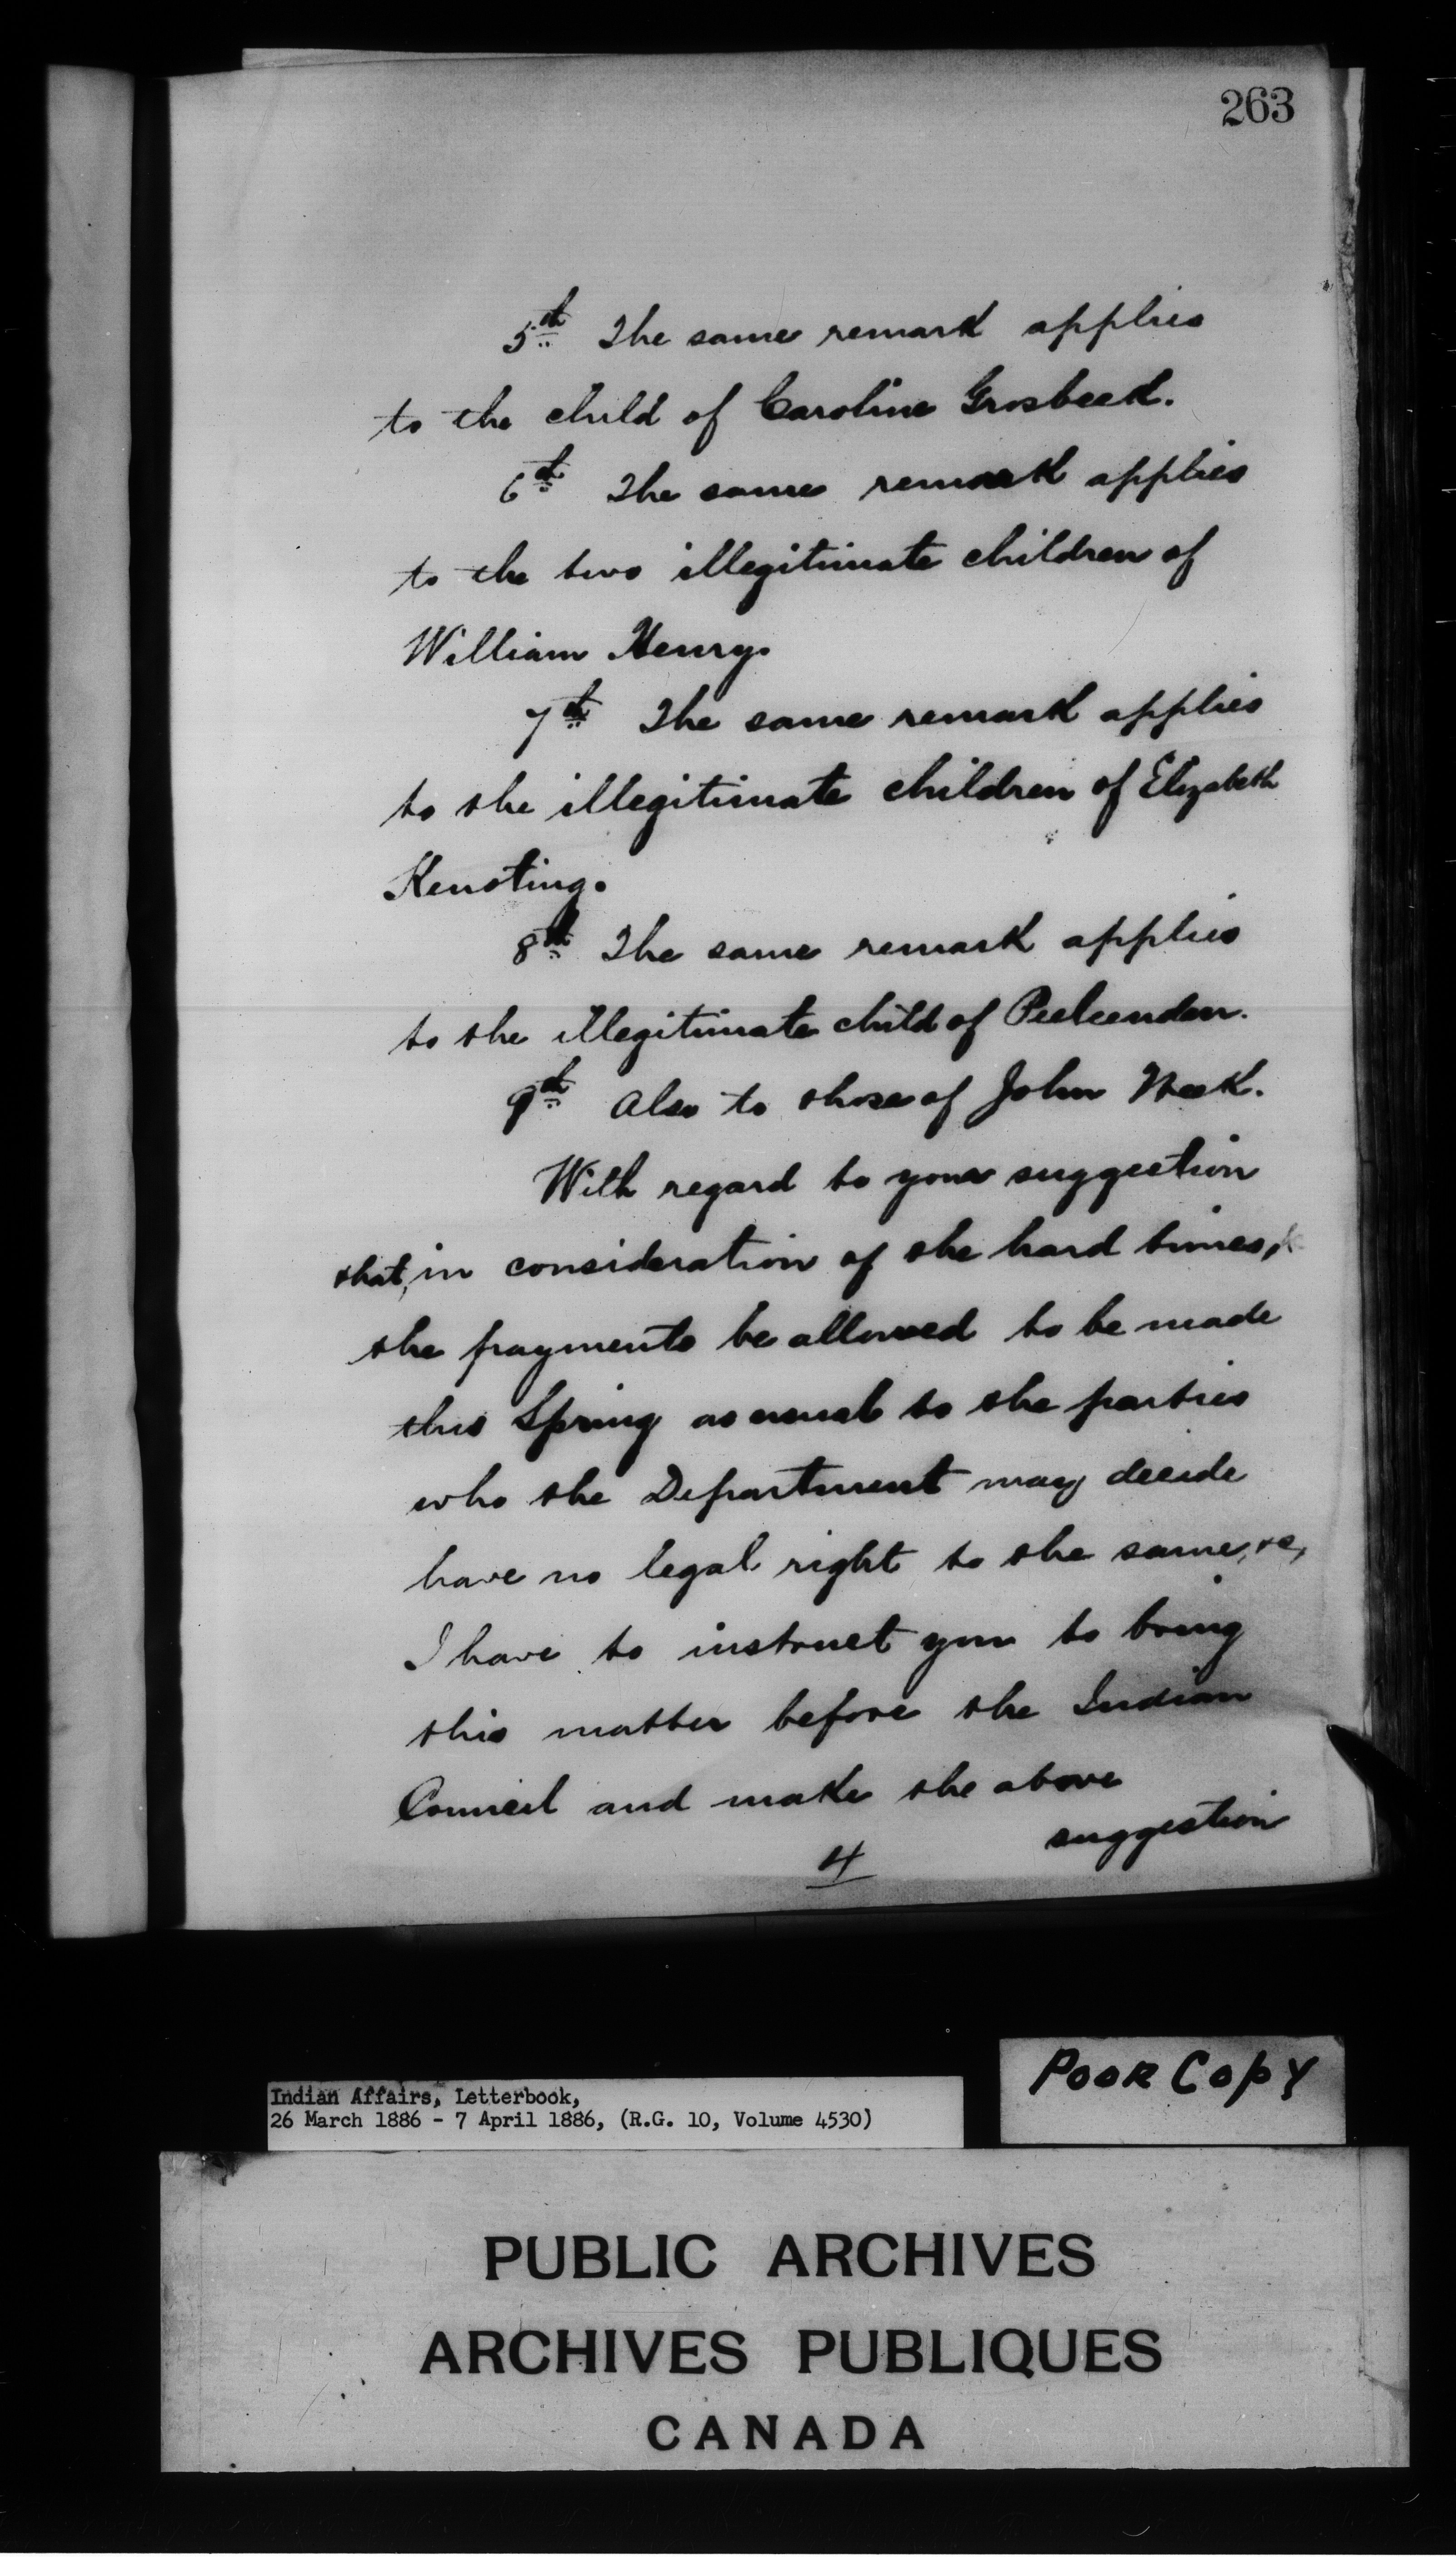 263
5th The same remark applies
to the child of Caroline Grosbeek.
6th The same remark applies
to the two illegitimate children of
William Henry.
7th The same remark applies
to the illegitimate children of Elizabeth
8th The same remark applies
to the illegitimate child of
9th Also to those of John
With regard to your suggestion
that, in consideration of the hard times,
the payments be allowed to be made
this Spring as usual to the parties
who the Department may decide
have no legal right to the same, &c,
I have to instruct you to bring
this matter before the Indian
Council and make the above
suggestion
4
Indian Affairs, Letterbook,
26 March 1886 - 7 April 1886, (R.G. 10, Volume 4530)
POOR COPY
PUBLIC ARCHIVES
ARCHIVES PUBLIQUES
CANADA